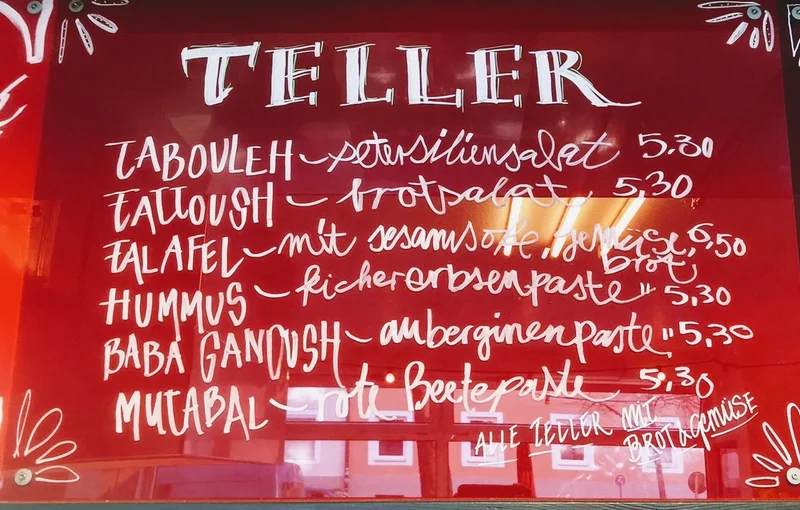 TELLER
TABOULEH ~ petersiliensalat 5,30
FATTOUSH ~ brotsalat 5,30
FALAFEL ~ mit sesamsoße, gemüse, brot 6,50
HUMMUS ~ kichererbsenpaste " 5,30
BABA GANOUSH ~ auberginenpaste " 5,30
MUTABAL ~ rote Beetepaste 5,30
ALLE TELLER MIT
BROT & GEMÜSE